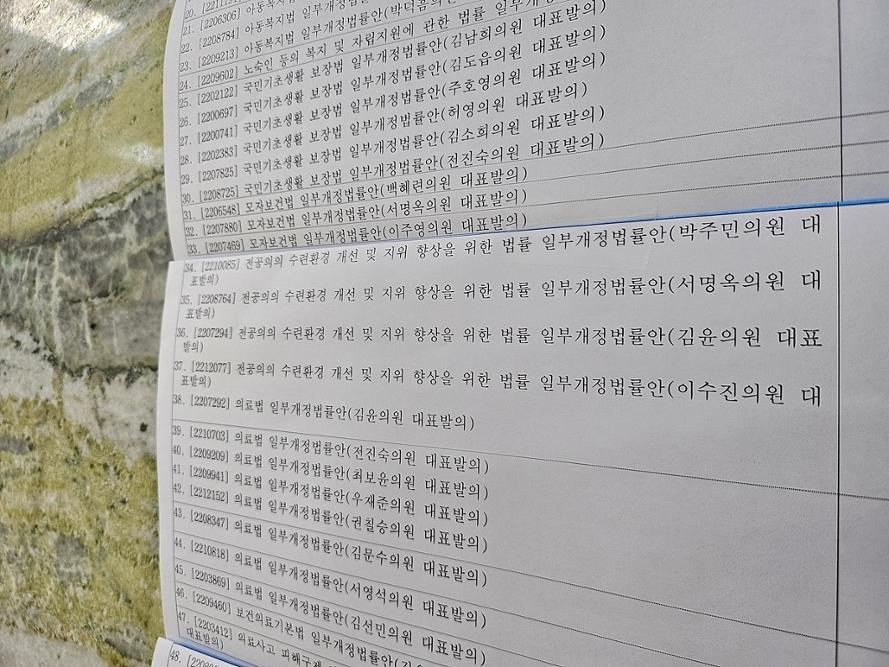 20. 
21. [2206306] 아동복지법
22. [2208784] 아동복지법 일부개정법률안
23. [2209213] 아동복지법 일부개정법률안(박덕흠의원
24. [2209602] 노숙인 등의 복지 및 자립지원에 관한 법률 일부개정
25. [2202122] 국민기초생활 보장법 일부개정법률안(김남희의원 대표발의)
26. [2200697] 국민기초생활 보장법 일부개정법률안(김도읍의원 대표발의)
27. [2200741] 국민기초생활 보장법 일부개정법률안(주호영의원 대표발의)
28. [2202383] 국민기초생활 보장법 일부개정법률안(허영의원 대표발의)
29. [2207825] 국민기초생활 보장법 일부개정법률안(김소희의원 대표발의)
30. [2208725] 국민기초생활 보장법 일부개정법률안(전진숙의원 대표발의)
31. [2206548] 모자보건법 일부개정법률안(백혜련의원 대표발의)
32. [2207880] 모자보건법 일부개정법률안(서명옥의원 대표발의)
33. [2207469] 모자보건법 일부개정법률안(이주영의원 대표발의)
34. [2210085] 전공의의 수련환경 개선 및 지위 향상을 위한 법률 일부개정법률안(박주민의원 대
표발의)
35. [2208764] 전공의의 수련환경 개선 및 지위 향상을 위한 법률 일부개정법률안(서명옥의원 대
표발의)
36. [2207294] 전공의의 수련환경 개선 및 지위 향상을 위한 법률 일부개정법률안(김윤의원 대표
발의)
37. [2212077] 전공의의 수련환경 개선 및 지위 향상을 위한 법률 일부개정법률안(이수진의원 대
표발의)
38. [2207292] 의료법 일부개정법률안(김윤의원 대표발의)
39. [2210703] 의료법 일부개정법률안(전진숙의원 대표발의)
40. [2209209] 의료법 일부개정법률안(최보윤의원 대표발의)
41. [2209941] 의료법 일부개정법률안(우재준의원 대표발의)
42. [2212152] 의료법 일부개정법률안(권칠승의원 대표발의)
43. [2208347] 의료법 일부개정법률안(김문수의원 대표발의)
44. [2210818] 의료법 일부개정법률안(서영석의원 대표발의)
45. [2203869] 의료법 일부개정법률안(김선민의원 대표발의)
46. [2209460] 보건의료기본법 일부개정법률안(김
47. [2203412] 의료사고 피해구제
대표발의)
48.